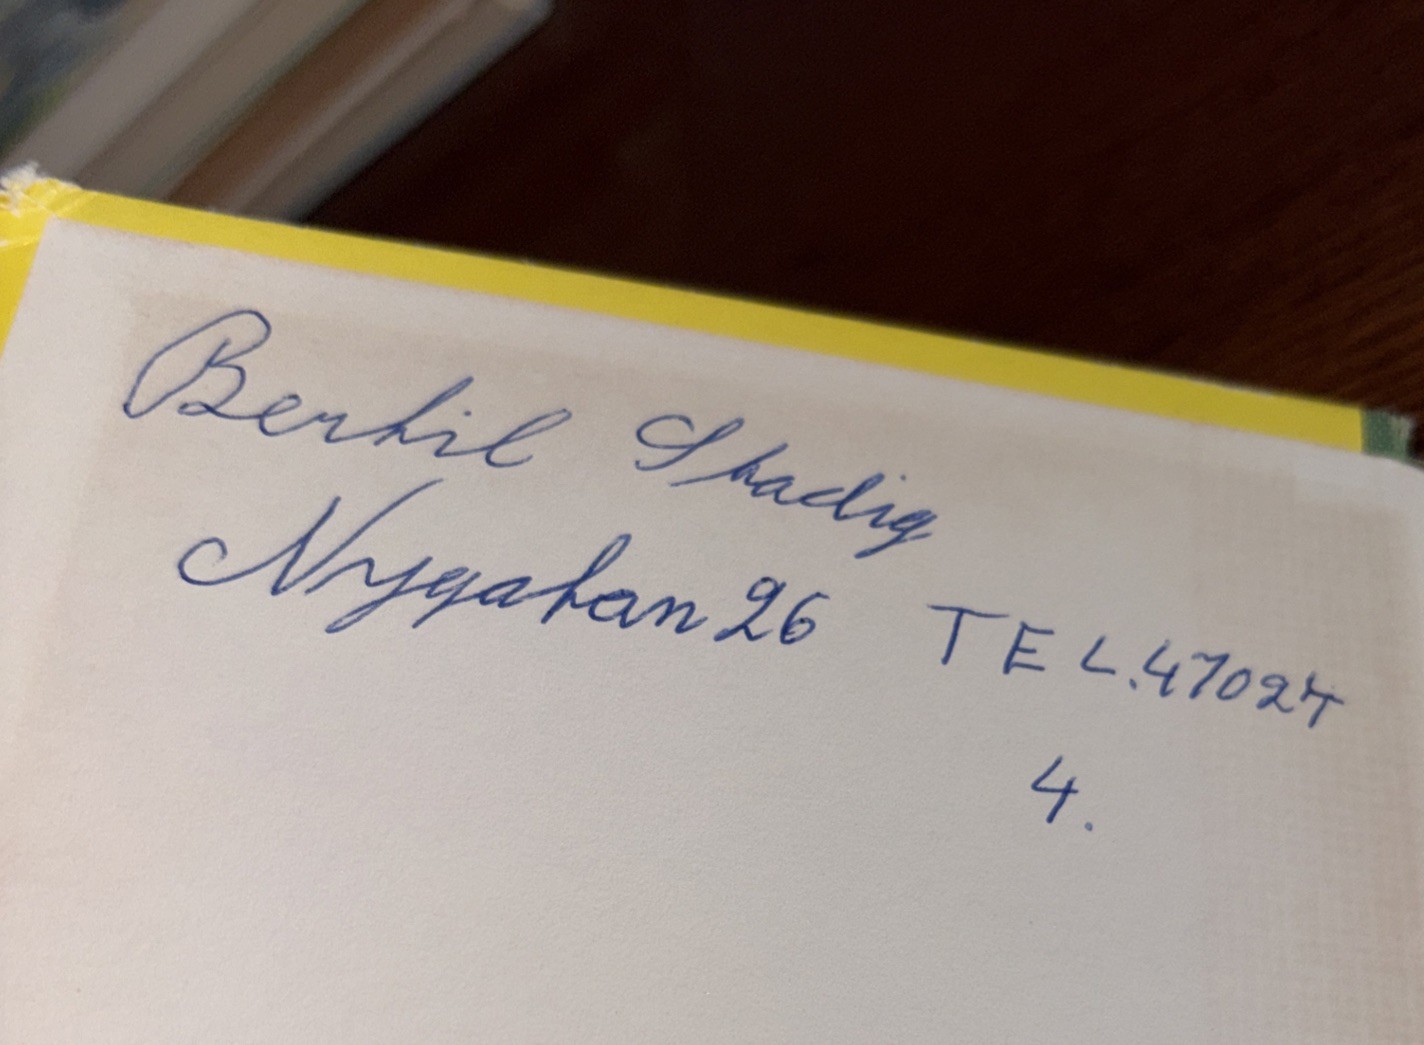 Bertil Skadig
Nygatan 26 TEL.47024
4.